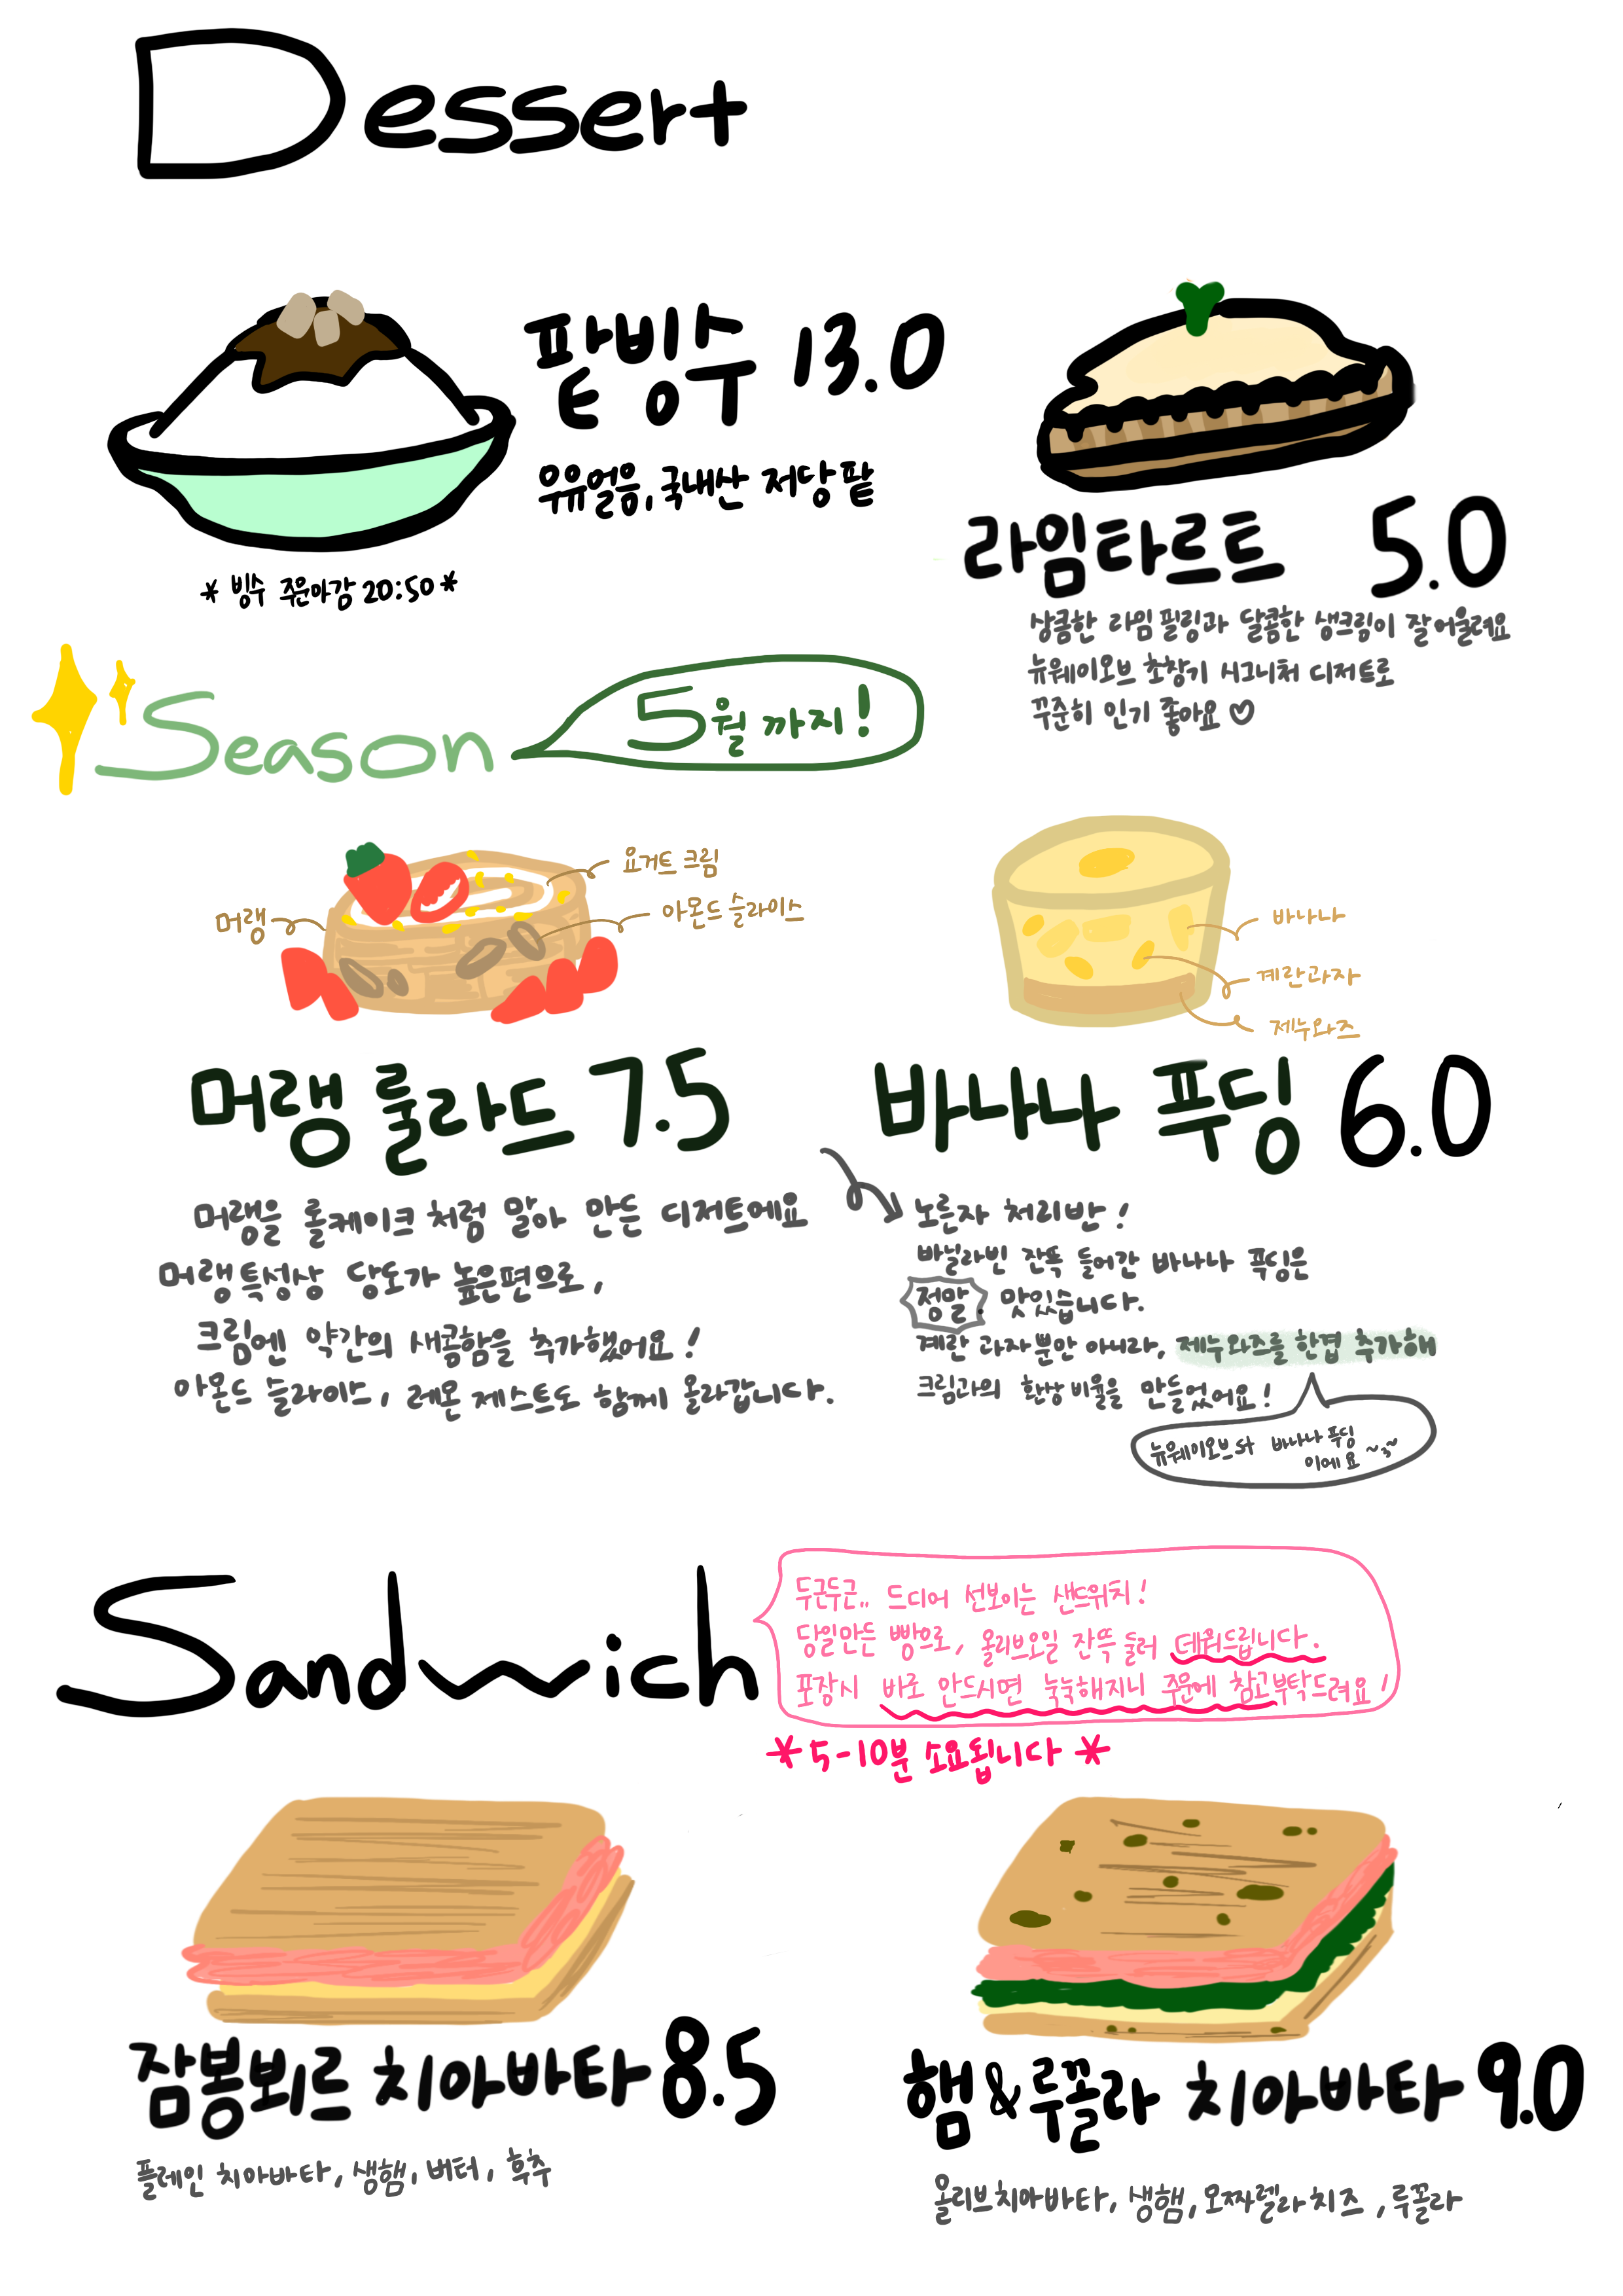 Dessert
팥빙수 13.0
우유얼음, 국내산 저당 팥
* 빙수 주문마감 20:50 *
라임타르트 5.0
상콤한 라임 필링과 달콤한 생크림이 잘어울려요
뉴웨이오브 초창기 시그니처 디저트로
꾸준히 인기 좋아요 ♡
Season
5월 까지!
요거트 크림
아몬드 슬라이스
머랭
머랭 룰라드 7.5
머랭을 롤케이크 처럼 말아 만든 디저트에요
머랭특성상 당도가 높은편으로,
크림엔 약간의 새콤함을 추가했어요!
아몬드 슬라이스, 레몬 제스트도 함께 올라갑니다.
바나나
계란과자
제누와즈
바나나 푸딩 6.0
노른자 처리반!
바닐라빈 잔뜩 들어간 바나나 푸딩은
정말. 맛있습니다.
계란 과자뿐만 아니라, 제누와즈를 한겹 추가해
크림과의 환상비율을 만들었어요!
뉴웨이오브st 바나나 푸딩
이에요 ~3~
Sandwich
두근두근.. 드디어 선보이는 샌드위치!
당일만든 빵으로, 올리브오일 잔뜩 둘러 데워드립니다.
포장시 바로 안드시면 눅눅해지니 주문에 참고부탁드려요!
*5-10분 소요됩니다 *
잠봉뵈르 치아바타 8.5
플레인 치아바타, 생햄, 버터, 후추
햄&루꼴라 치아바타 9.0
올리브치아바타, 생햄, 모짜렐라치즈, 루꼴라